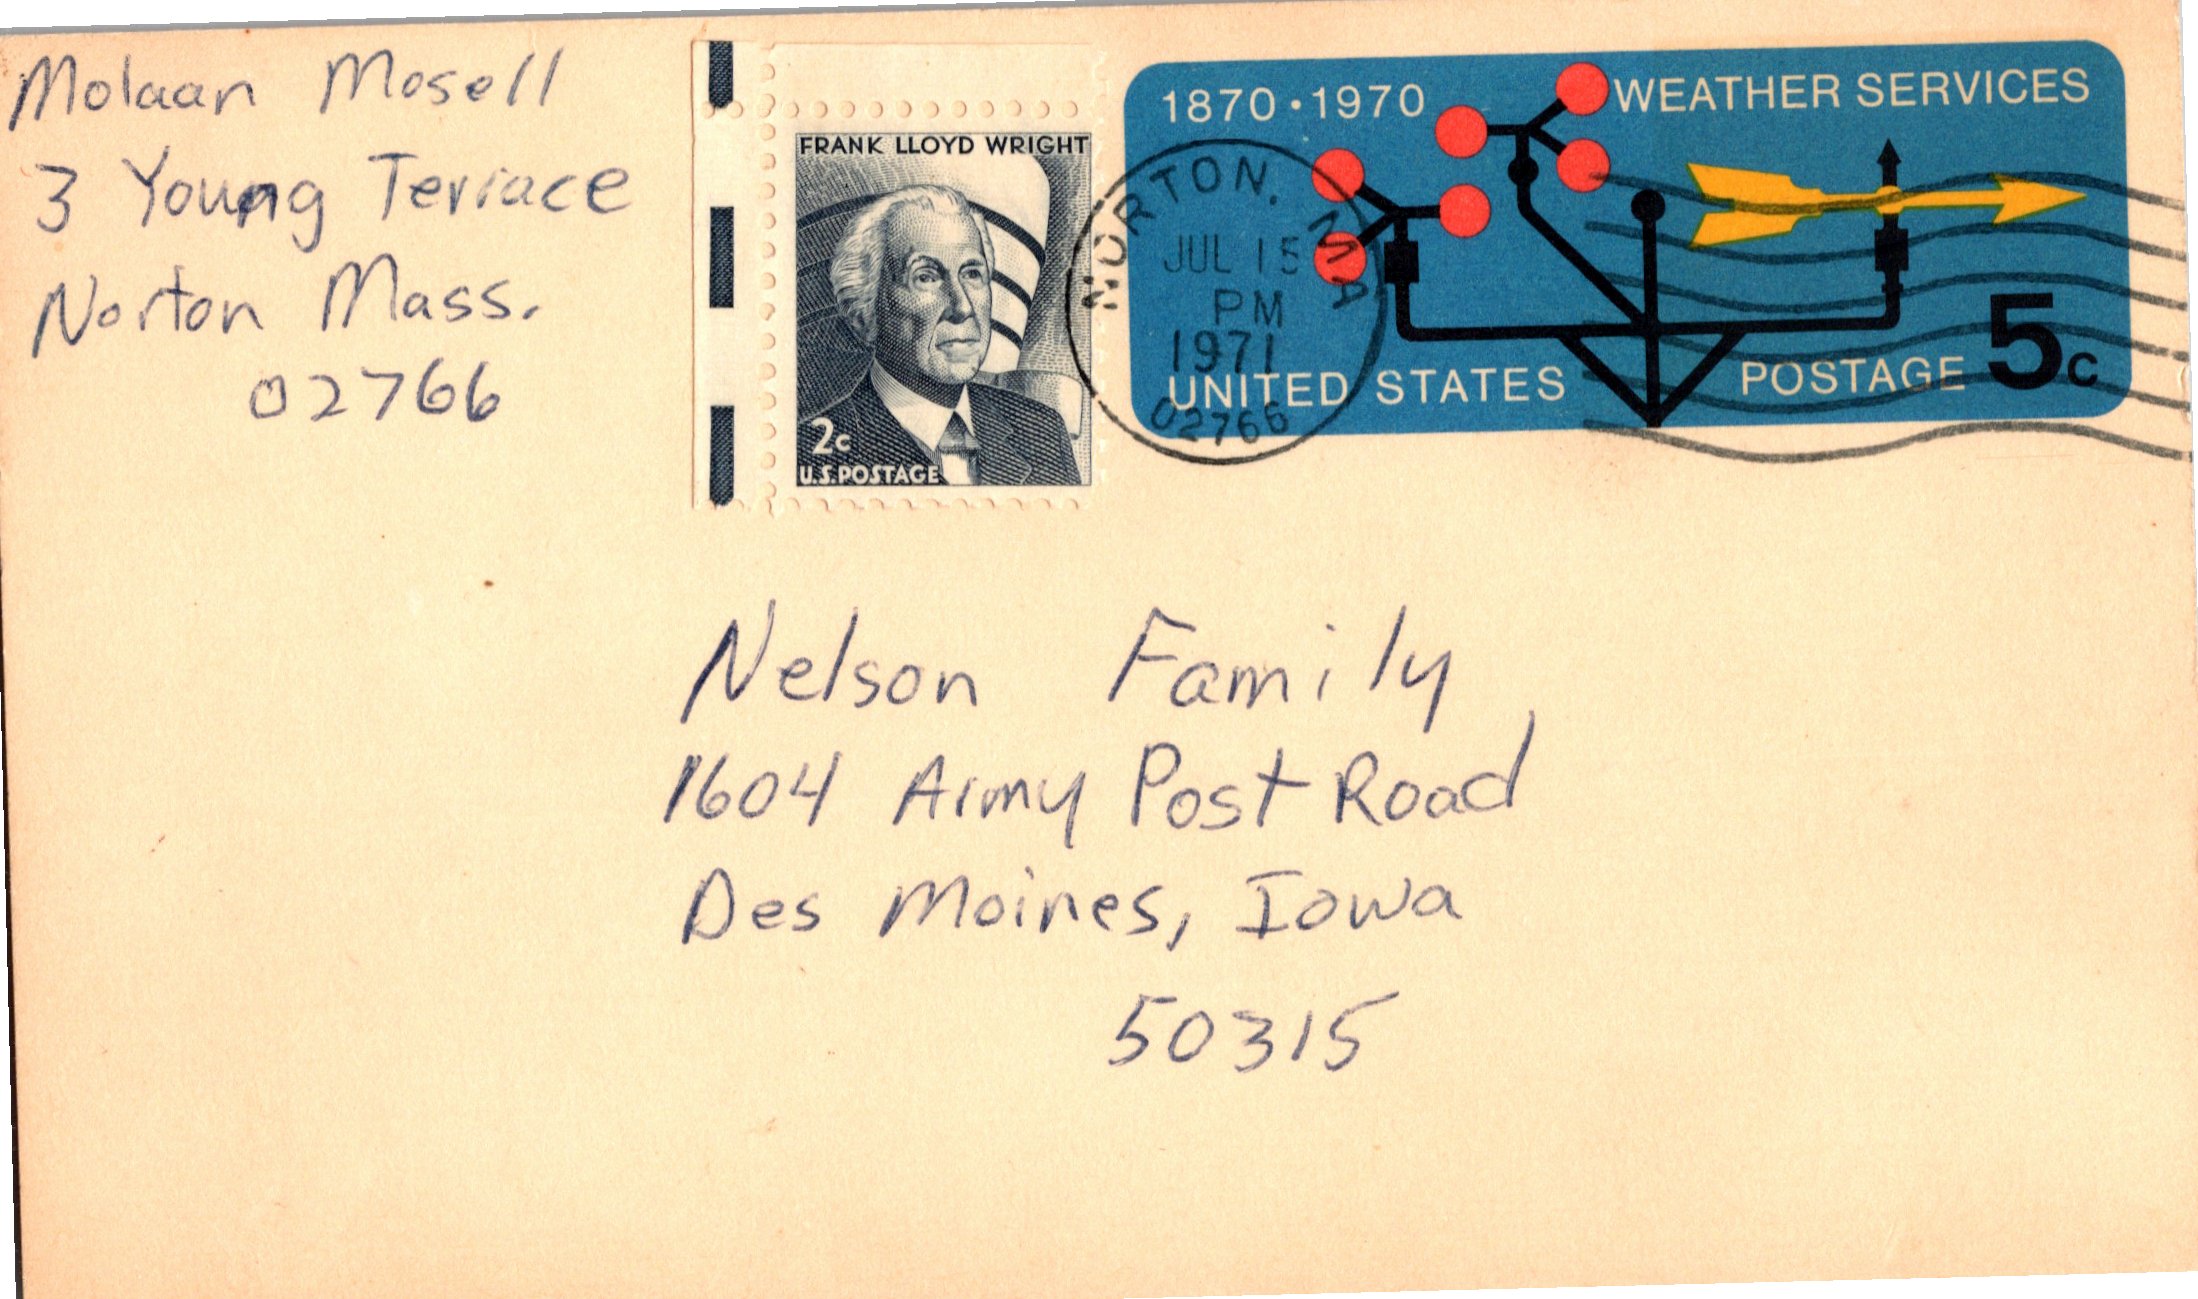 Molaan Mosell
3 Young Terrace
Norton Mass.
02766
FRANK LLOYD WRIGHT
2c
U.S. POSTAGE
NORTON, MA
JUL 15
PM
1971
02766
1870 • 1970 WEATHER SERVICES
UNITED STATES POSTAGE 5c
Nelson Family
1604 Army Post Road
Des Moines, Iowa
50315